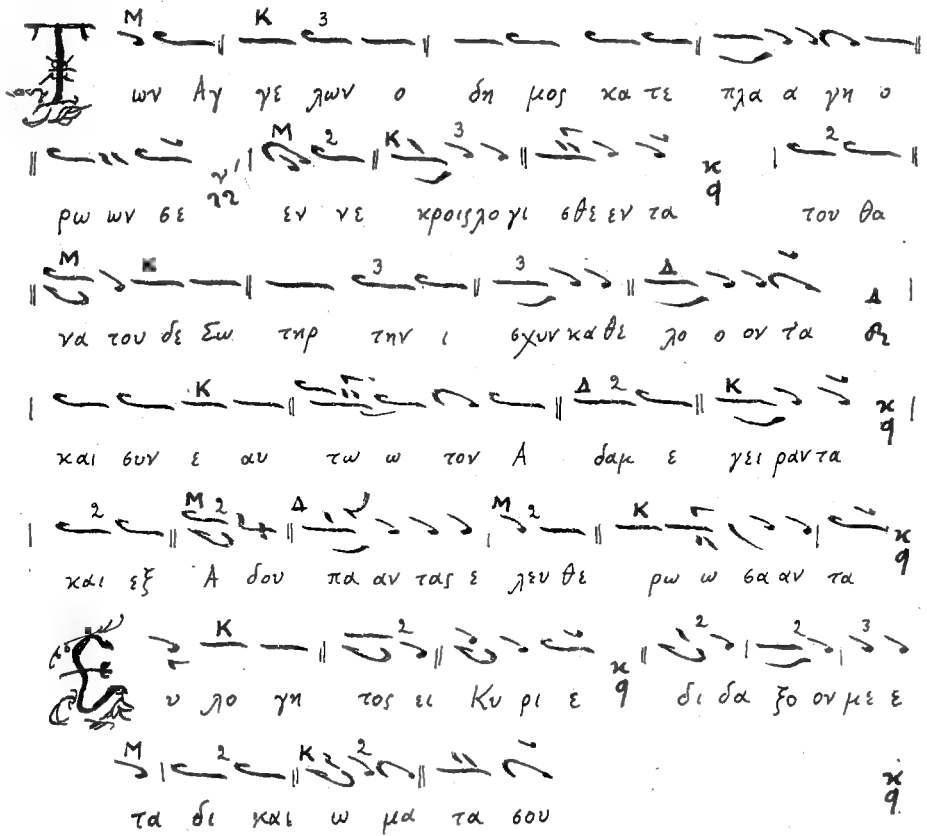 Των Αγ γε λων ο δη μος κα τε πλα α γη ο
ρω ων σε εν νε κροις λο γι σθε εν τα του θα
να του δε Σω τηρ την ι σχυν κα θε λο ο ον τα
και συν ε αυ τω ω τον Α δαμ ε γει ραν τα
και εξ Α δου πα αν τας ε λευ θε ρω ω σα αν τα
Ευ λο γη τος ει Κυ ρι ε δι δα ξο ον με ε
τα δι και ω μα τα σου